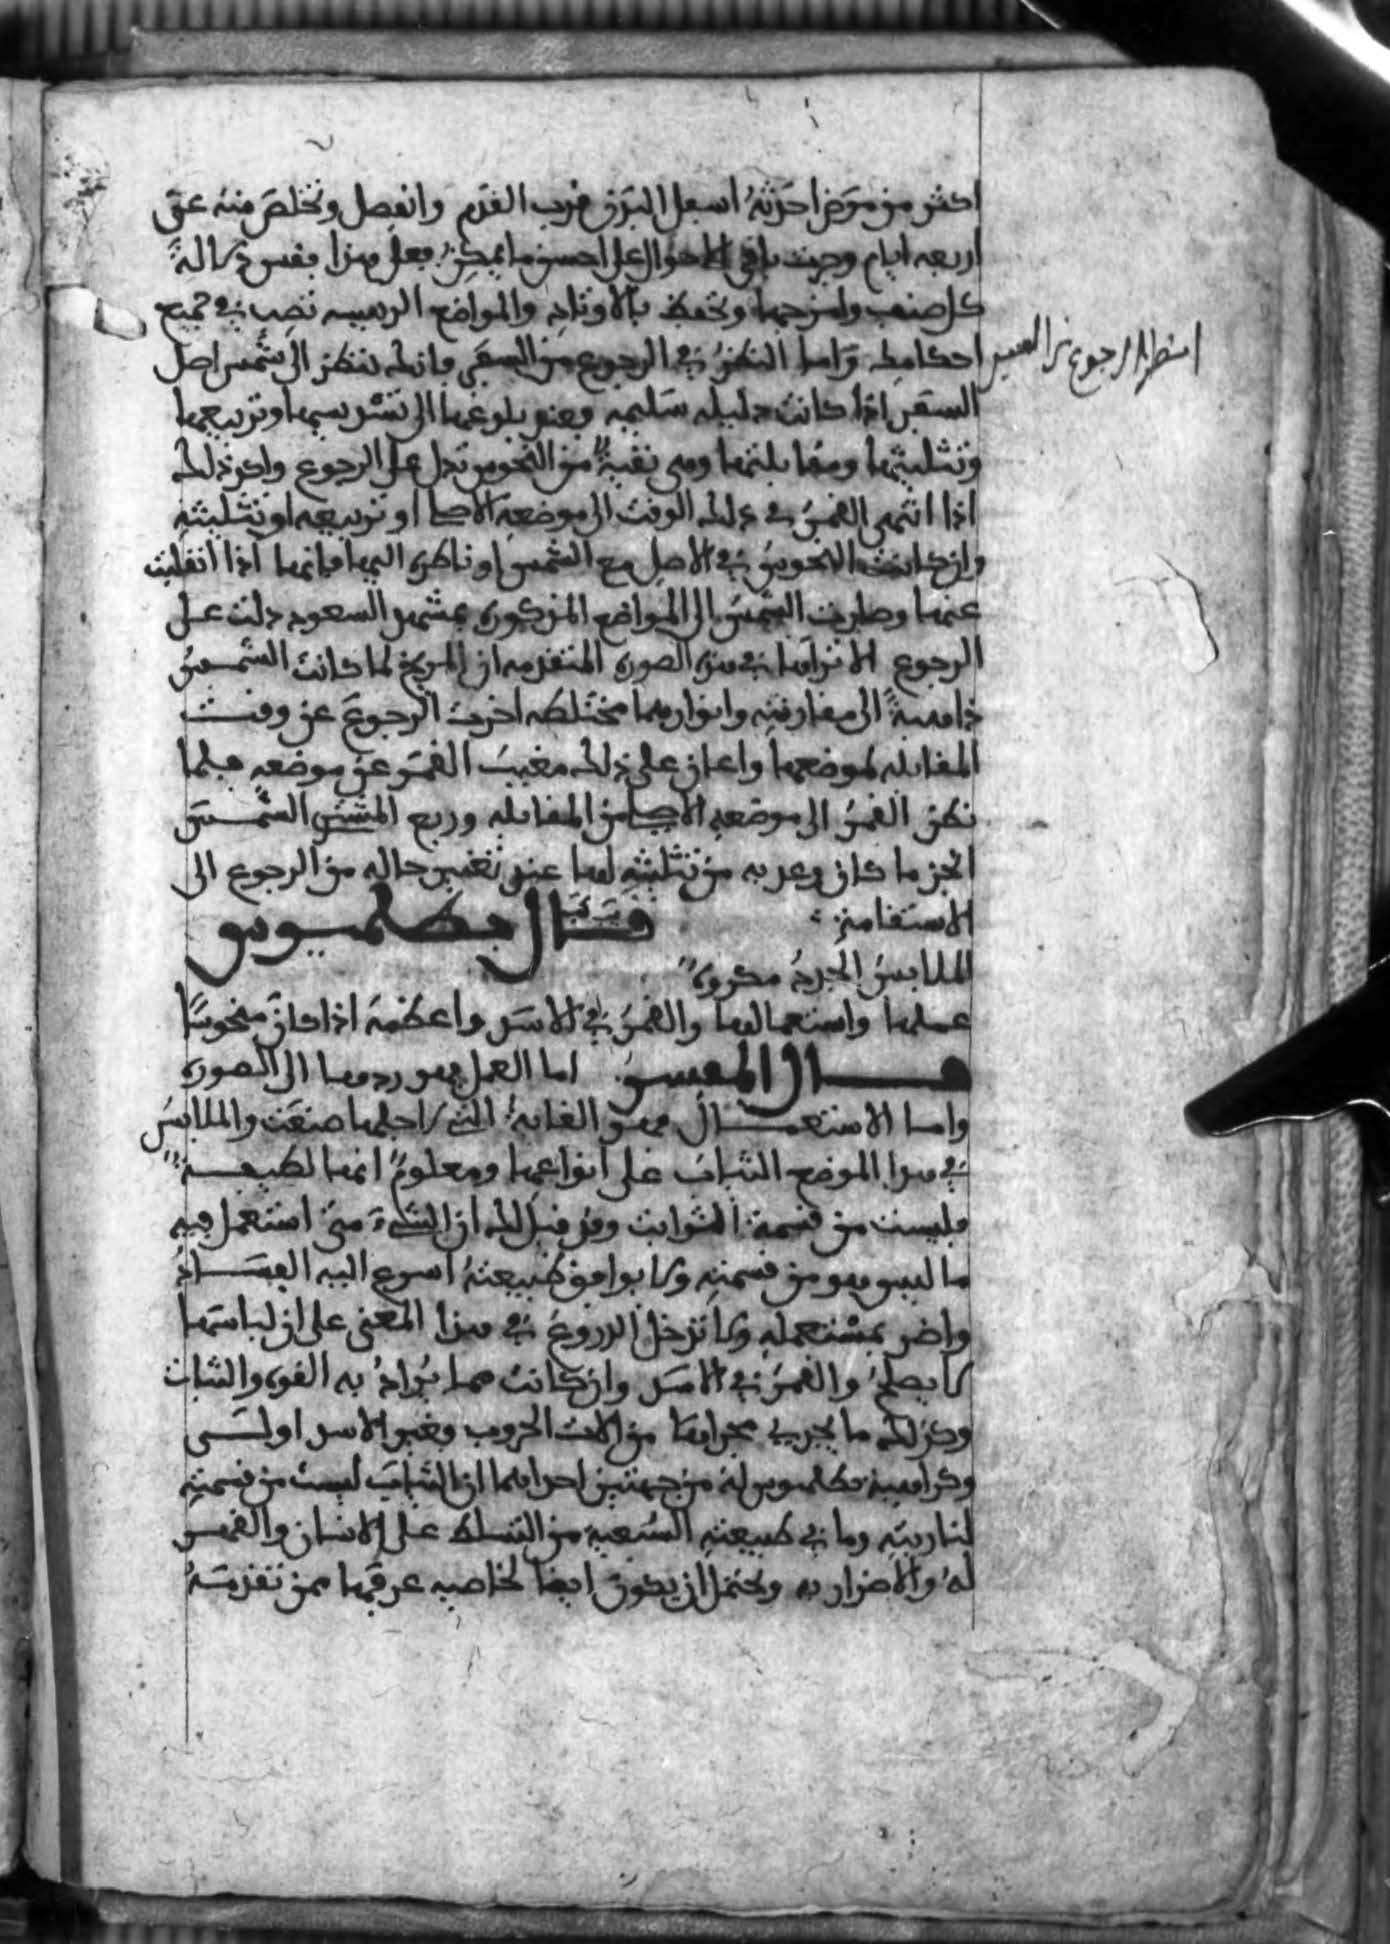 اكثر من مرض احدثه اسبل البدن قرب القدم وانفصل وتخلص منه عن
اربعه ايام وجرت باقي الاحوال على احسن ما يمكن فعلى هذا بقس دلالة
كل صنف وامزجها وتحفظ بالاوتاد والمواضع الرييسه تصب في جميع
احكامك واما النظر في الرجوع من السفر فانك تنظر الى شمس اصل
استطراد الرجوع من السفر
السفر اذا كانت دليله سليمه وعند بلوغها الى تسديسها وتربيعها
وتثليثها ومقابلتها وهي نقية من النحوس تدل على الرجوع واكد ذلك
اذا انتهى القمر في ذلك الوقت الى موضعه الاصلي او تربيعه او تثليثه
وان كانت النحوس في الاصل مع الشمس او ناظره اليها فانها اذا انفلتت
عنها وصارت الشمس الى المواضع المذكوره بمشهد السعود دلت على
الرجوع الا تراها في هذه الصوره المتقدمه ان المريخ لما كانت الشمس
ذاهبة الى مقارنته وانوارهما مختلطه اخرت الرجوع عن وقت
المقابله لموضعها واعان على ذلك مغيب القمر عن موضعه فلما
نظر القمر الى موضعه الاصلي من المقابله ورجع المشتري الشمس
انجز ما كان وعد به من تثليثه لها عند تغير حاله من الرجوع الى
الاستقامه قال بطلميوس
الملابس الجدد مكروه
عملها واستعمالها والقمر في الاسد واعظمه اذا كان منحوسا
قال المفسر اما العمل فهو ردها الى الصوره
واما الاستعمال فهو الغاية التي لاجلها صنعت والملابس
في هذا الموضع الثياب على انواعها ومعلوم انها لطيفة
فليست من قسمة الثوابت وقد قيل لك ان الشيء متى استعمل فيه
ما ليس هو من قسمته ولا يوافق طبيعته اسرع اليه الفساد
واضر بمستعمله ولا تدخل الدروع في هذا المعنى على ان لباسها
لا يصلح والقمر في الاسد وان كانت مما يراد به القوه والثبات
وكذلك ما يجري مجراها من الات الحروب وغير الاسد اولى
وكراهية بطلميوس له من جهتين احداهما ان الثياب ليست من قسمته
لناريته وما في طبيعته السبعية من التسلط على الانسان والقهر
له والاضرار به ويحتمل ان يكون ايضا لخاصيه عرفها ممن تقدمه